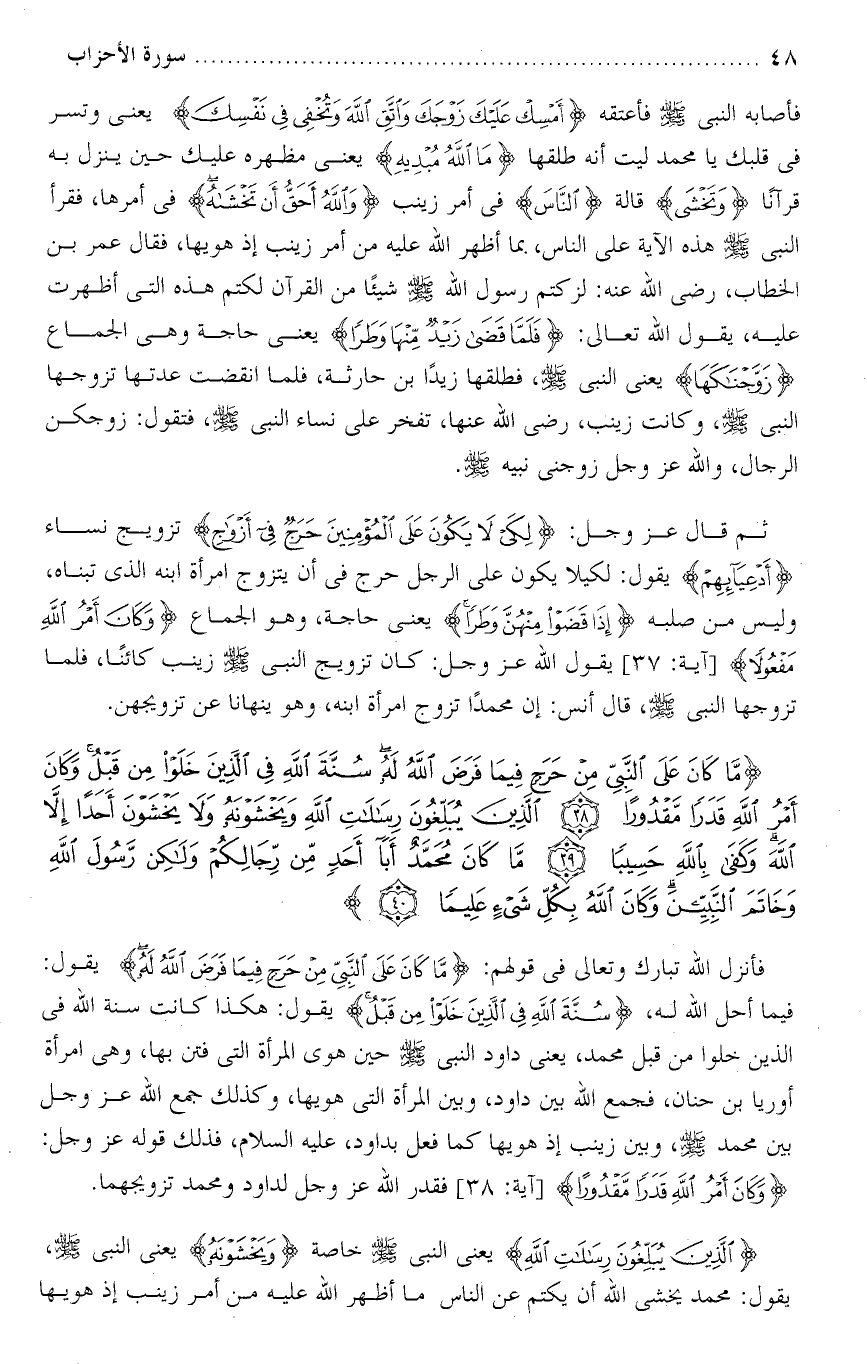 ٤٨ ........................................................................ سورة الأحزاب
فأصابه النبى ﷺ فأعتقه ﴿أَمْسِكْ عَلَيْكَ زَوْجَكَ وَاتَّقِ اللَّهَ وَتُخْفِي فِي نَفْسِكَ﴾ يعنى وتسر
فى قلبك يا محمد ليت أنه طلقها ﴿مَا اللَّهُ مُبْدِيهِ﴾ يعنى مظهره عليك حين ينزل به
قرآنًا ﴿وَتَخْشَى﴾ قالة ﴿النَّاسَ﴾ فى أمر زينب ﴿وَاللَّهُ أَحَقُّ أَن تَخْشَاهُ﴾ فى أمرها، فقرأ
النبى ﷺ هذه الآية على الناس، بما أظهر الله عليه من أمر زينب إذ هويها، فقال عمر بن
الخطاب، رضى الله عنه: لو كتم رسول الله ﷺ شيئًا من القرآن لكتم هذه التى أظهرت
عليه، يقول الله تعالى: ﴿فَلَمَّا قَضَى زَيْدٌ مِّنْهَا وَطَرًا﴾ يعنى حاجة وهى الجماع
﴿زَوَّجْنَاكَهَا﴾ يعنى النبى ﷺ، فطلقها زيدًا بن حارثة، فلما انقضت عدتها تزوجها
النبى ﷺ، وكانت زينب، رضى الله عنها، تفخر على نساء النبى ﷺ، فتقول: زوجكن
الرجال، والله عز وجل زوجنى نبيه ﷺ.
ثم قال عز وجل: ﴿لِكَيْ لَا يَكُونَ عَلَى الْمُؤْمِنِينَ حَرَجٌ فِي أَزْوَاجِ﴾ تزويج نساء
﴿أَدْعِيَائِهِمْ﴾ يقول: لكيلا يكون على الرجل حرج فى أن يتزوج امرأة ابنه الذى تبناه،
وليس من صلبه ﴿إِذَا قَضَوْا مِنْهُنَّ وَطَرًا﴾ يعنى حاجة، وهو الجماع ﴿وَكَانَ أَمْرُ اللَّهِ
مَفْعُولًا﴾ [آية: ٣٧] يقول الله عز وجل: كان تزويج النبى ﷺ زينب كائنًا، فلما
تزوجها النبى ﷺ، قال أنس: إن محمدًا تزوج امرأة ابنه، وهو ينهانا عن تزويجهن.
﴿مَّا كَانَ عَلَى النَّبِيِّ مِنْ حَرَجٍ فِيمَا فَرَضَ اللَّهُ لَهُ سُنَّةَ اللَّهِ فِي الَّذِينَ خَلَوْا مِن قَبْلُ وَكَانَ
أَمْرُ اللَّهِ قَدَرًا مَّقْدُورًا ٣٨ الَّذِينَ يُبَلِّغُونَ رِسَالَاتِ اللَّهِ وَيَخْشَوْنَهُ وَلَا يَخْشَوْنَ أَحَدًا إِلَّا
اللَّهَ وَكَفَى بِاللَّهِ حَسِيبًا ٣٩ مَّا كَانَ مُحَمَّدٌ أَبَا أَحَدٍ مِّن رِّجَالِكُمْ وَلَكِن رَّسُولَ اللَّهِ
وَخَاتَمَ النَّبِيِّينَ وَكَانَ اللَّهُ بِكُلِّ شَيْءٍ عَلِيمًا ٤٠ ﴾
فأنزل الله تبارك وتعالى فى قولهم: ﴿مَّا كَانَ عَلَى النَّبِيِّ مِنْ حَرَجٍ فِيمَا فَرَضَ اللَّهُ لَهُ﴾ يقول:
فيما أحل الله له، ﴿سُنَّةَ اللَّهِ فِي الَّذِينَ خَلَوْا مِن قَبْلُ﴾ يقول: هكذا كانت سنة الله فى
الذين خلوا من قبل محمد، يعنى داود النبى ﷺ حين هوى المرأة التى فتن بها، وهى امرأة
أوريا بن حنان، فجمع الله بين داود، وبين المرأة التى هويها، وكذلك جمع الله عز وجل
بين محمد ﷺ، وبين زينب إذ هويها كما فعل بداود، عليه السلام، فذلك قوله عز وجل:
﴿وَكَانَ أَمْرُ اللَّهِ قَدَرًا مَّقْدُورًا﴾ [آية: ٣٨] فقدر الله عز وجل لداود ومحمد تزويجهما.
﴿الَّذِينَ يُبَلِّغُونَ رِسَالَاتِ اللَّهِ﴾ يعنى النبى ﷺ خاصة ﴿وَيَخْشَوْنَهُ﴾ يعنى النبى ﷺ،
يقول: محمد يخشى الله أن يكتم عن الناس ما أظهر الله عليه من أمر زينب إذ هويها